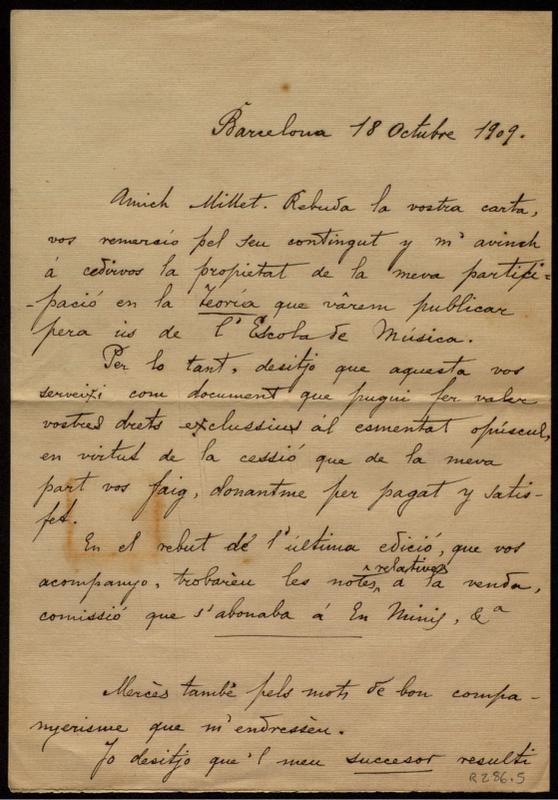 Barcelona 18 Octubre 1909.
Amich Millet. Rebuda la vostra carta,
vos remercio pel seu contingut y m'avinch
á cedirvos la propietat de la meva partici-
-pació en la Teoría que vàrem publicar
pera ús de l'Escola de Música.
Per lo tant, desitjo que aquesta vos
serveixi com document que pugui fer valer
vostres drets exclussius al esmentat opúscul,
en virtut de la cessió que de la meva
part vos faig, donantme per pagat y satis-
fet.
En el rebut de l'última edició, que vos
acompanyo, trobarèu les notes relatives á la venda,
comissió que s'abonaba á En Minis, &a
Mercès també pels mots de bon compa-
nyerisme que m'endressèu.
Jo desitjo que'l meu succesor resulti
R286.5